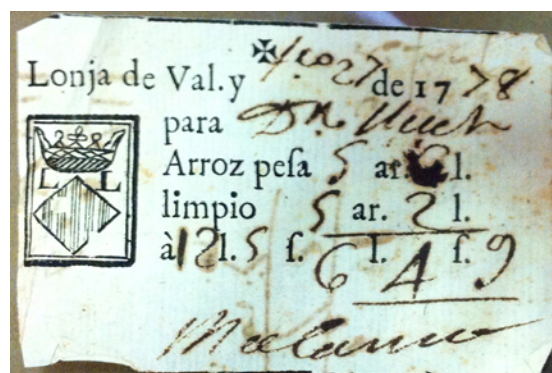 ✠
Lonja de Val. y de 17 78
para Dn.
Arroz peſa 5 ar. l.
limpio 5 ar. 2 l.
à 12 l. 5 ſ. 6 l. 4 ſ. 9
L L